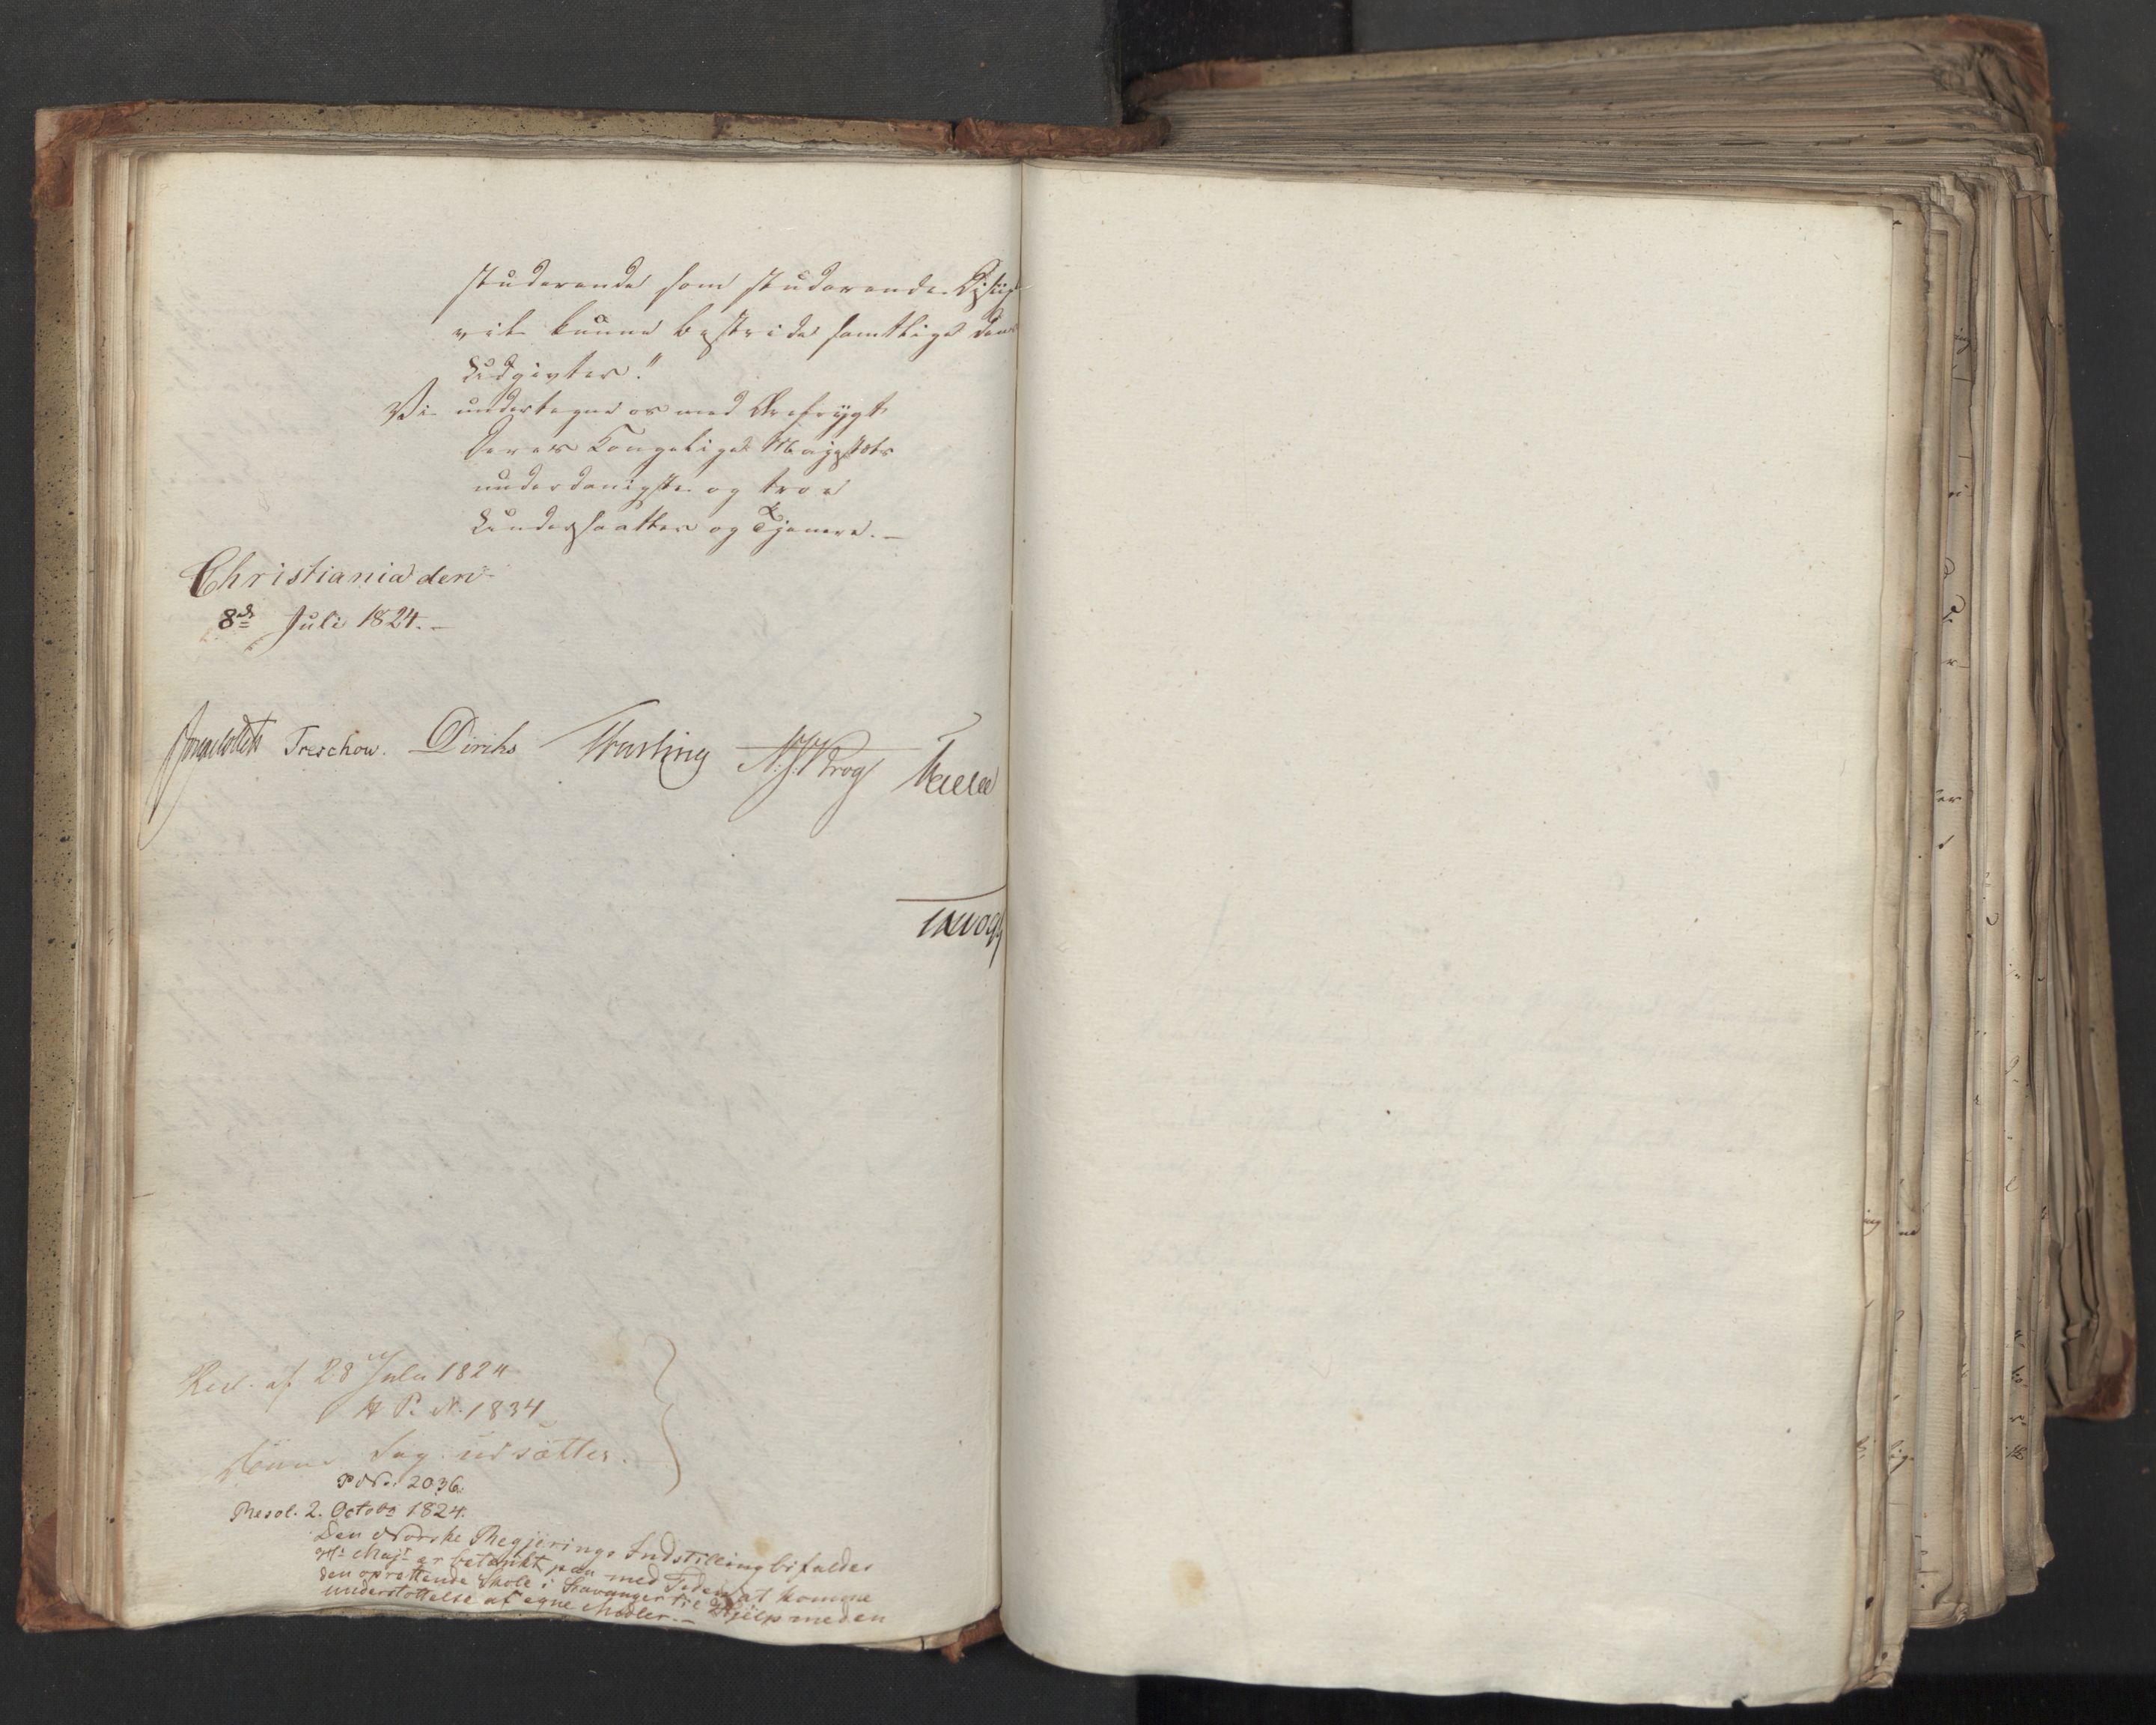 studerende som studerende Discip
vil kunne bestride samtlige dens
Udgivter."
Vi undertegne os med Ærefrygt
Deres Kongelige Majestæts
underdanigste og troe
Undersaatter og Tjenere. –
Christiania den
8de Juli 1824. –
Treschow. Diriks Fasting N.J. Krog
Resol. af 28 Julii 1824
P. N. 1834
Denne Sag udsættes.
P No. 2036.
Resol. 2. Octobr 1824.
Den Norske Regjerings Indstilling bifaldes
og Hs Majt er betænkt paa med Tiden at komme
den oprettende Skole i Stavanger til Hjelp med en
understøttelse af egne Midler. –